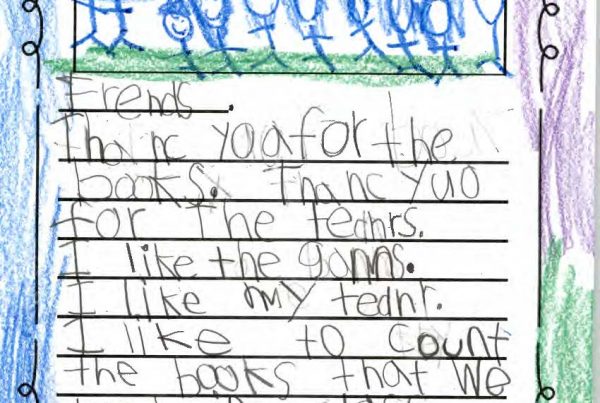 Frends.
Thanc yoa for the
books. Thanc yuo
for The tednrs.
I like the gonns.
I like my tednr.
I like to count
the books that We